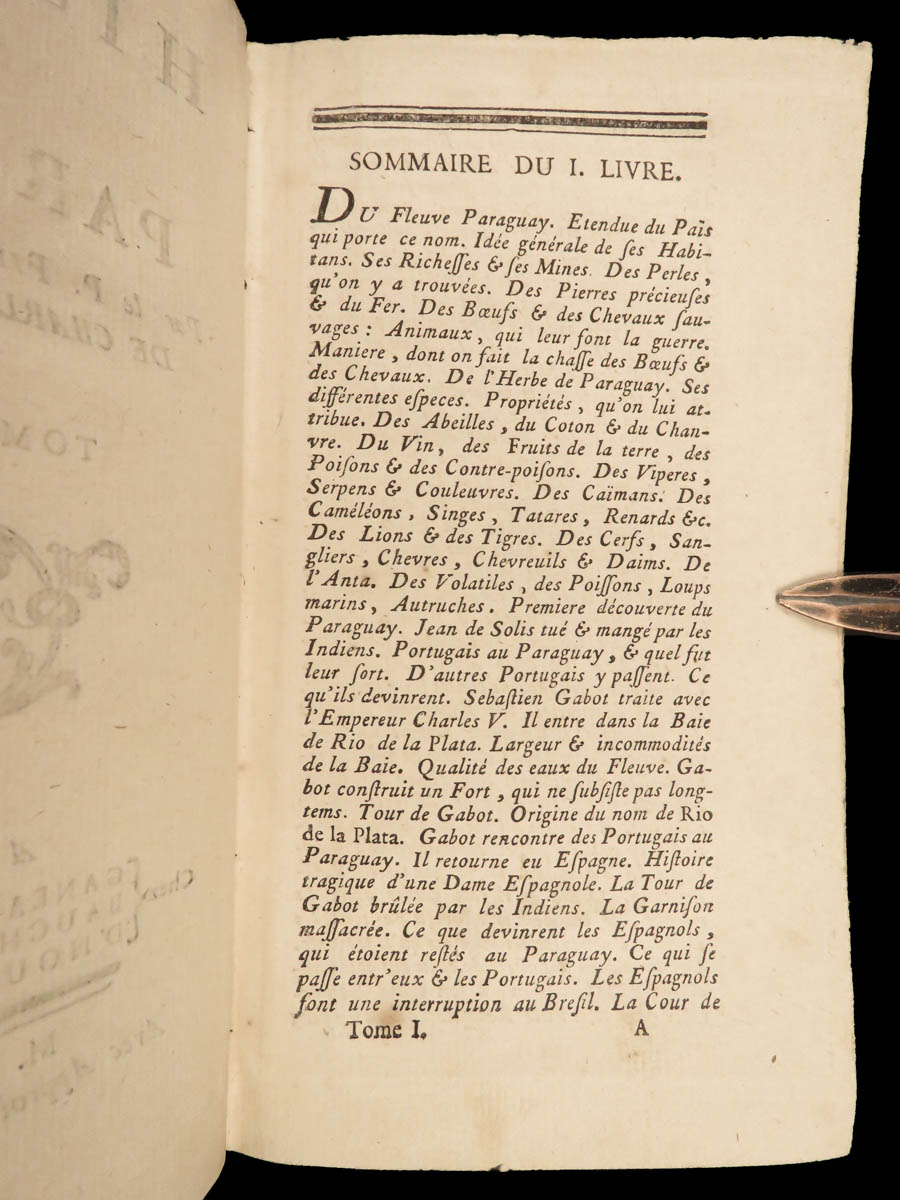 SOMMAIRE DU I. LIVRE.
DU Fleuve Paraguay. Etendue du Païs
qui porte ce nom. Idée générale de ſes Habi-
tans. Ses Richeſſes & ſes Mines. Des Perles,
qu'on y a trouvées. Des Pierres précieuſes
& du Fer. Des Bœufs & des Chevaux ſau-
vages : Animaux, qui leur font la guerre.
Maniere, dont on fait la chaſſe des Bœufs &
des Chevaux. De l'Herbe de Paraguay. Ses
différentes eſpeces. Propriétés, qu'on lui at-
tribue. Des Abeilles, du Coton & du Chan-
vre. Du Vin, des Fruits de la terre, des
Poiſons & des Contre-poiſons. Des Viperes,
Serpens & Couleuvres. Des Caïmans. Des
Caméléons, Singes, Tatares, Renards &c.
Des Lions & des Tigres. Des Cerfs, San-
gliers, Chevres, Chevreuils & Daims. De
l'Anta. Des Volatiles, des Poiſſons, Loups
marins, Autruches. Premiere découverte du
Paraguay. Jean de Solis tué & mangé par les
Indiens. Portugais au Paraguay, & quel fut
leur ſort. D'autres Portugais y paſſent. Ce
qu'ils devinrent. Sebaſtien Gabot traite avec
l'Empereur Charles V. Il entre dans la Baie
de Rio de la Plata. Largeur & incommodités
de la Baie. Qualité des eaux du Fleuve. Ga-
bot conſtruit un Fort, qui ne ſubſiſte pas long-
tems. Tour de Gabot. Origine du nom de Rio
de la Plata. Gabot rencontre des Portugais au
Paraguay. Il retourne eu Eſpagne. Hiſtoire
tragique d'une Dame Eſpagnole. La Tour de
Gabot brûlée par les Indiens. La Garniſon
maſſacrée. Ce que devinrent les Eſpagnols,
qui étoient reſtés au Paraguay. Ce qui ſe
paſſe entr'eux & les Portugais. Les Eſpagnols
font une interruption au Breſil. La Cour de
Tome I. A